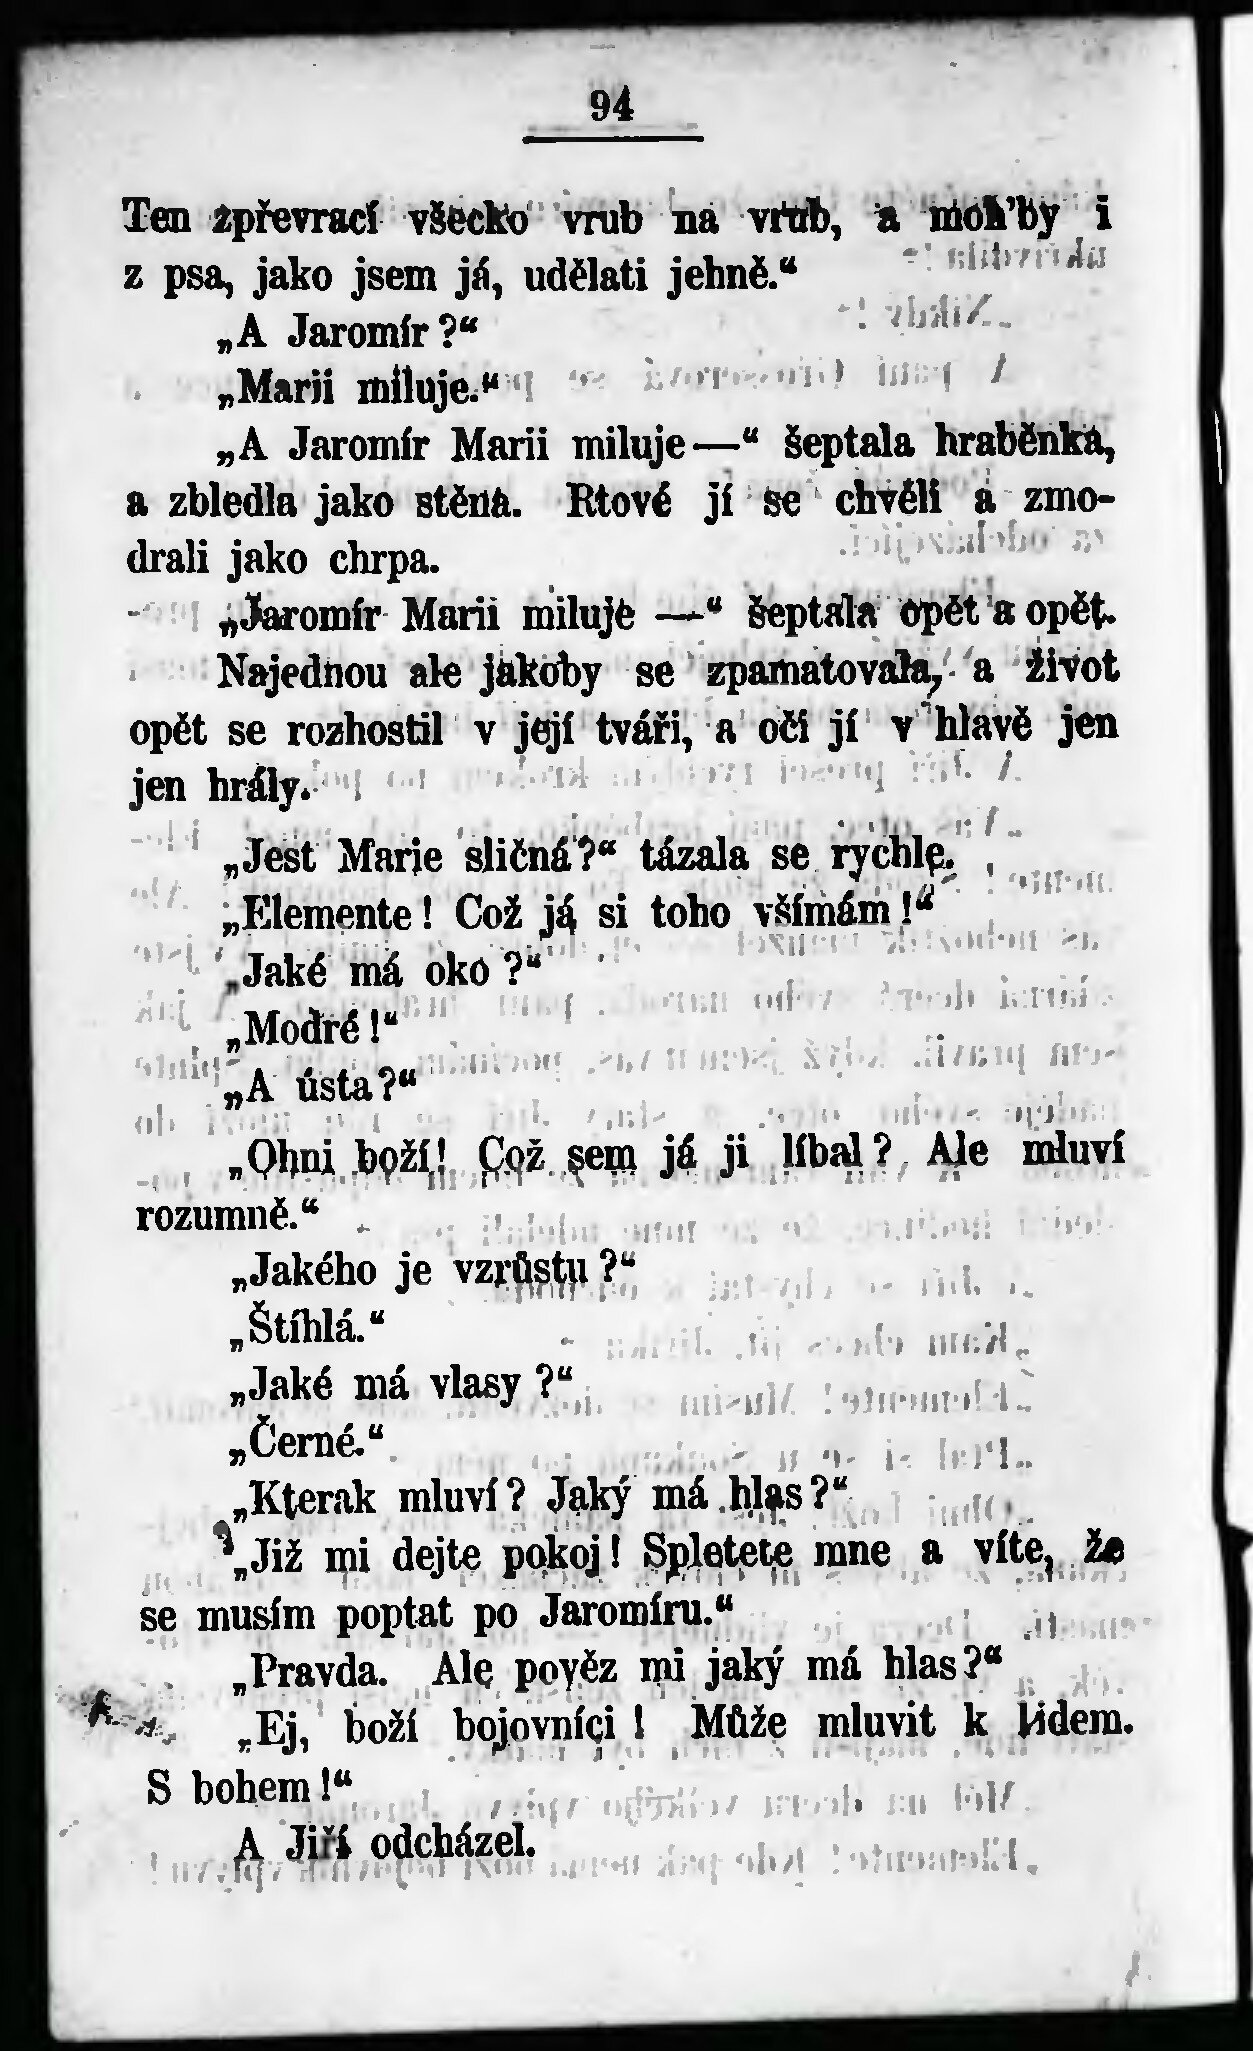 94
Ten zpřevrací všecko vrub na vrub, a moh'by i
z psa, jako jsem já, udělati jehně.“
„A Jaromír?“
„Marii miluje.“
„A Jaromír Marii miluje—“ šeptala hraběnka,
a zbledla jako stěna. Rtové jí se chvěli a zmo-
drali jako chrpa.
„Jaromír Marii miluje —“ šeptala opět a opět.
Najednou ale jakoby se zpamatovala, a život
opět se rozhostil v její tváři, a oči jí v hlavě jen
jen hrály.
„Jest Marie sličná?“ tázala se rychle.
„Elemente! Což já si toho všímám!“
„Jaké má oko?“
„Modré!“
„A ústa?“
„Ohni boží! Což sem já ji líbal? Ale mluví
rozumně.“
„Jakého je vzrůstu?“
„Štíhlá.“
„Jaké má vlasy?“
„Černé.“
„Kterak mluví? Jaký má hlas?“
„Již mi dejte pokoj! Spletete mne a víte, že
se musím poptat po Jaromíru.“
„Pravda. Ale pověz mi jaký má hlas?“
„Ej, boží bojovníci! Může mluvit k lidem.
S bohem!“
A Jiří odcházel.